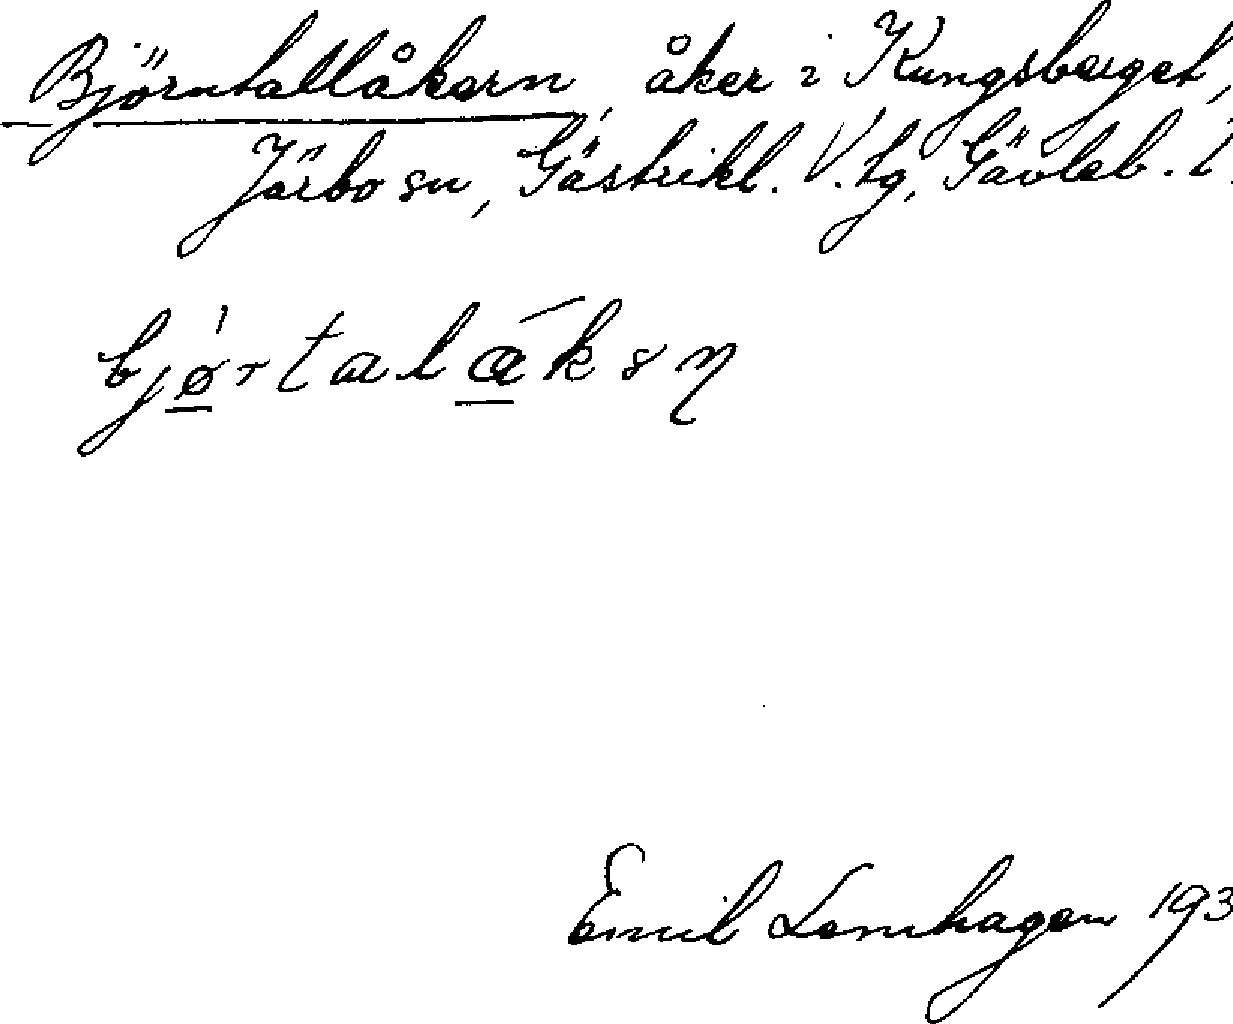 Björntallåkern, åker i Kungsberget,
Järbo sn, Gästrikl. V. tg, Gävleb. l.
Emil Lemhagen 193